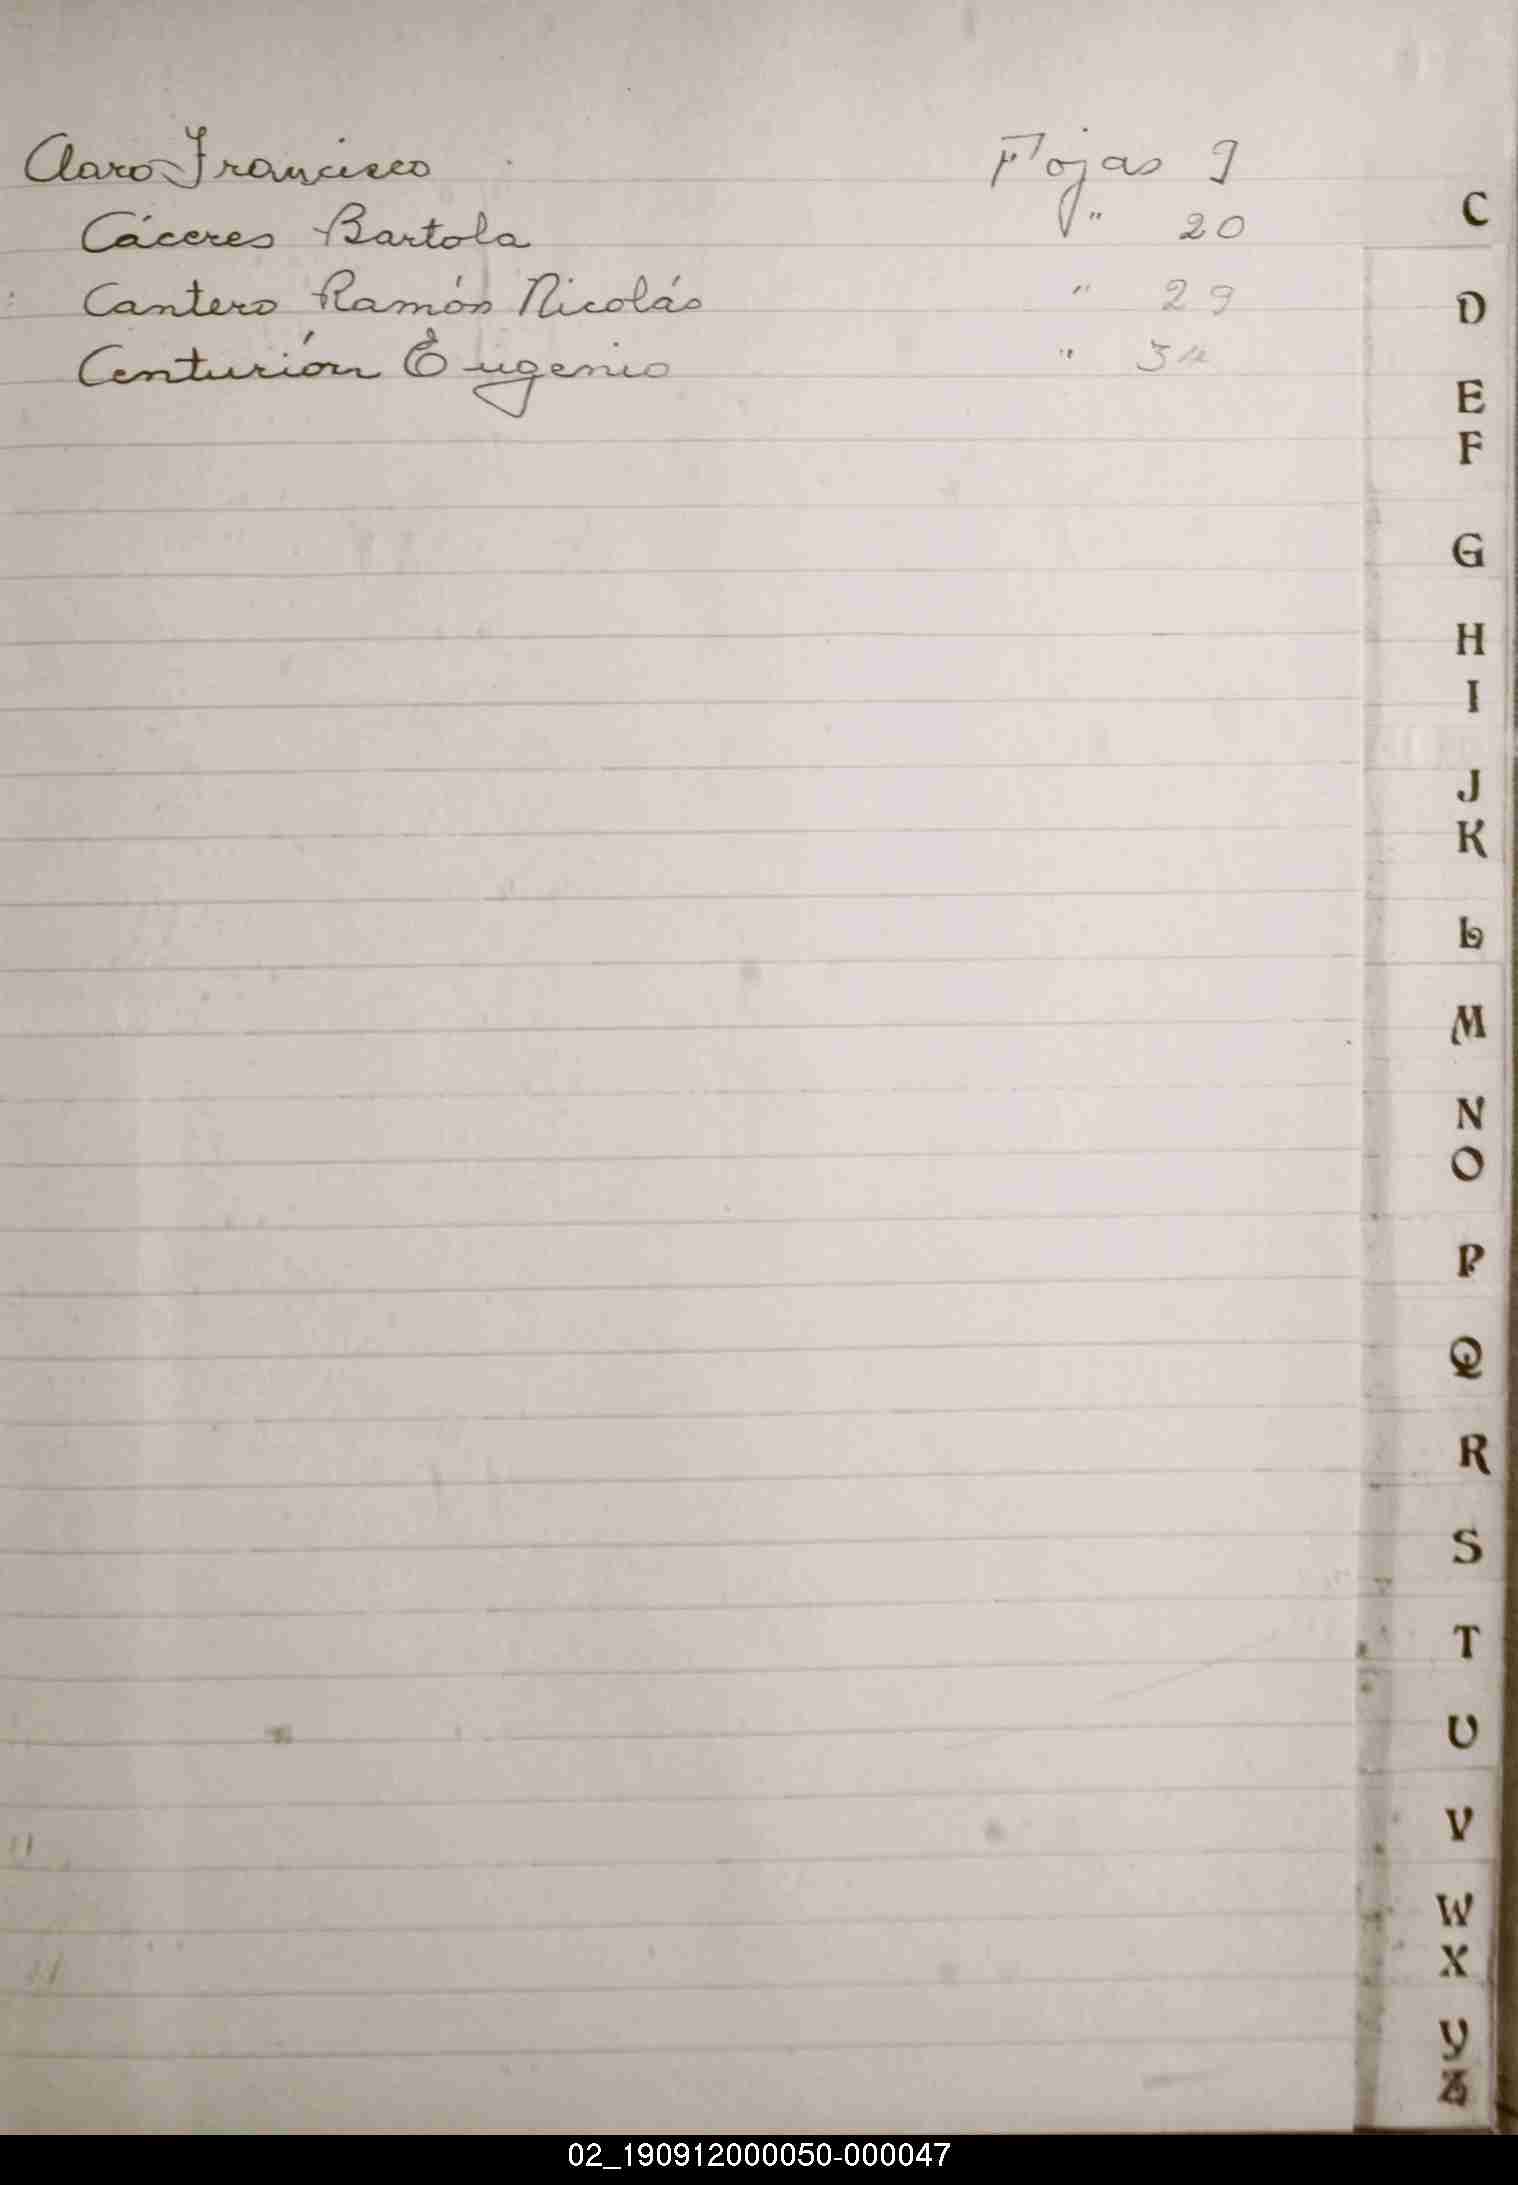 Claro Francisco Fojas 9
Cáceres Bartola " 20
Cantero Ramón Nicolás " 29
Centurión Eugenio " 34
C
D
E
F
G
H
I
J
K
L
M
N
O
P
Q
R
S
T
U
V
W
X
Y
Z
02_190912000050-000047